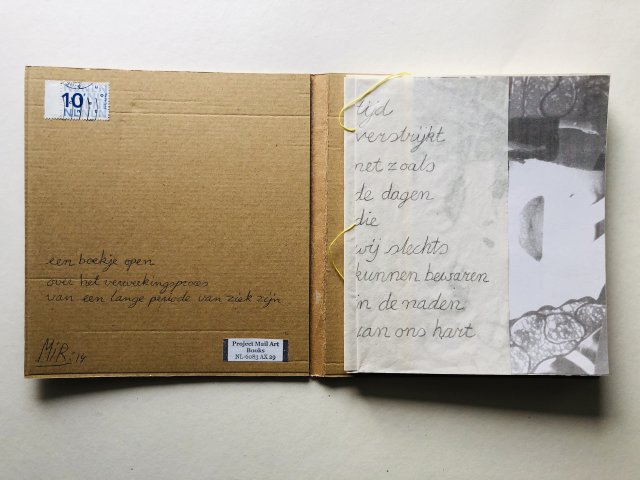 10
NL
een boekje open
over het verwerkingsproces
van een lange periode van ziek zijn
MiR. '14
Project Mail Art
Books
NL-6083 AX 29
tijd
verstrijkt
net zoals
de dagen
die
wij slechts
kunnen bewaren
in de naden
van ons hart